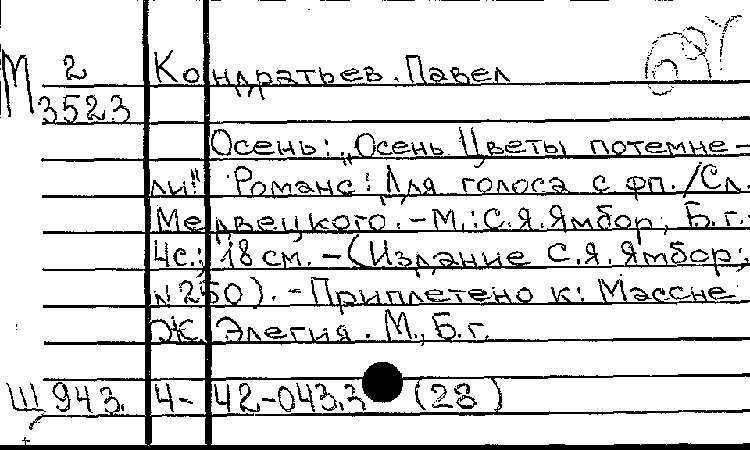 М 2 Кондратьев. Павел
3523
Осень: „Осень Цветы потемне-
ли!" Романс: Для голоса с фп./Сл.
Медвецкого. – М.: С.Я. Ямбор, Б.г.
4с.; 18 см. – (Издание С.Я. Ямбор;
N 250). – Приплетено к: Массне
Ж. Элегия. М., Б.г.
Ш 943. 4- 42-043.3 (28)